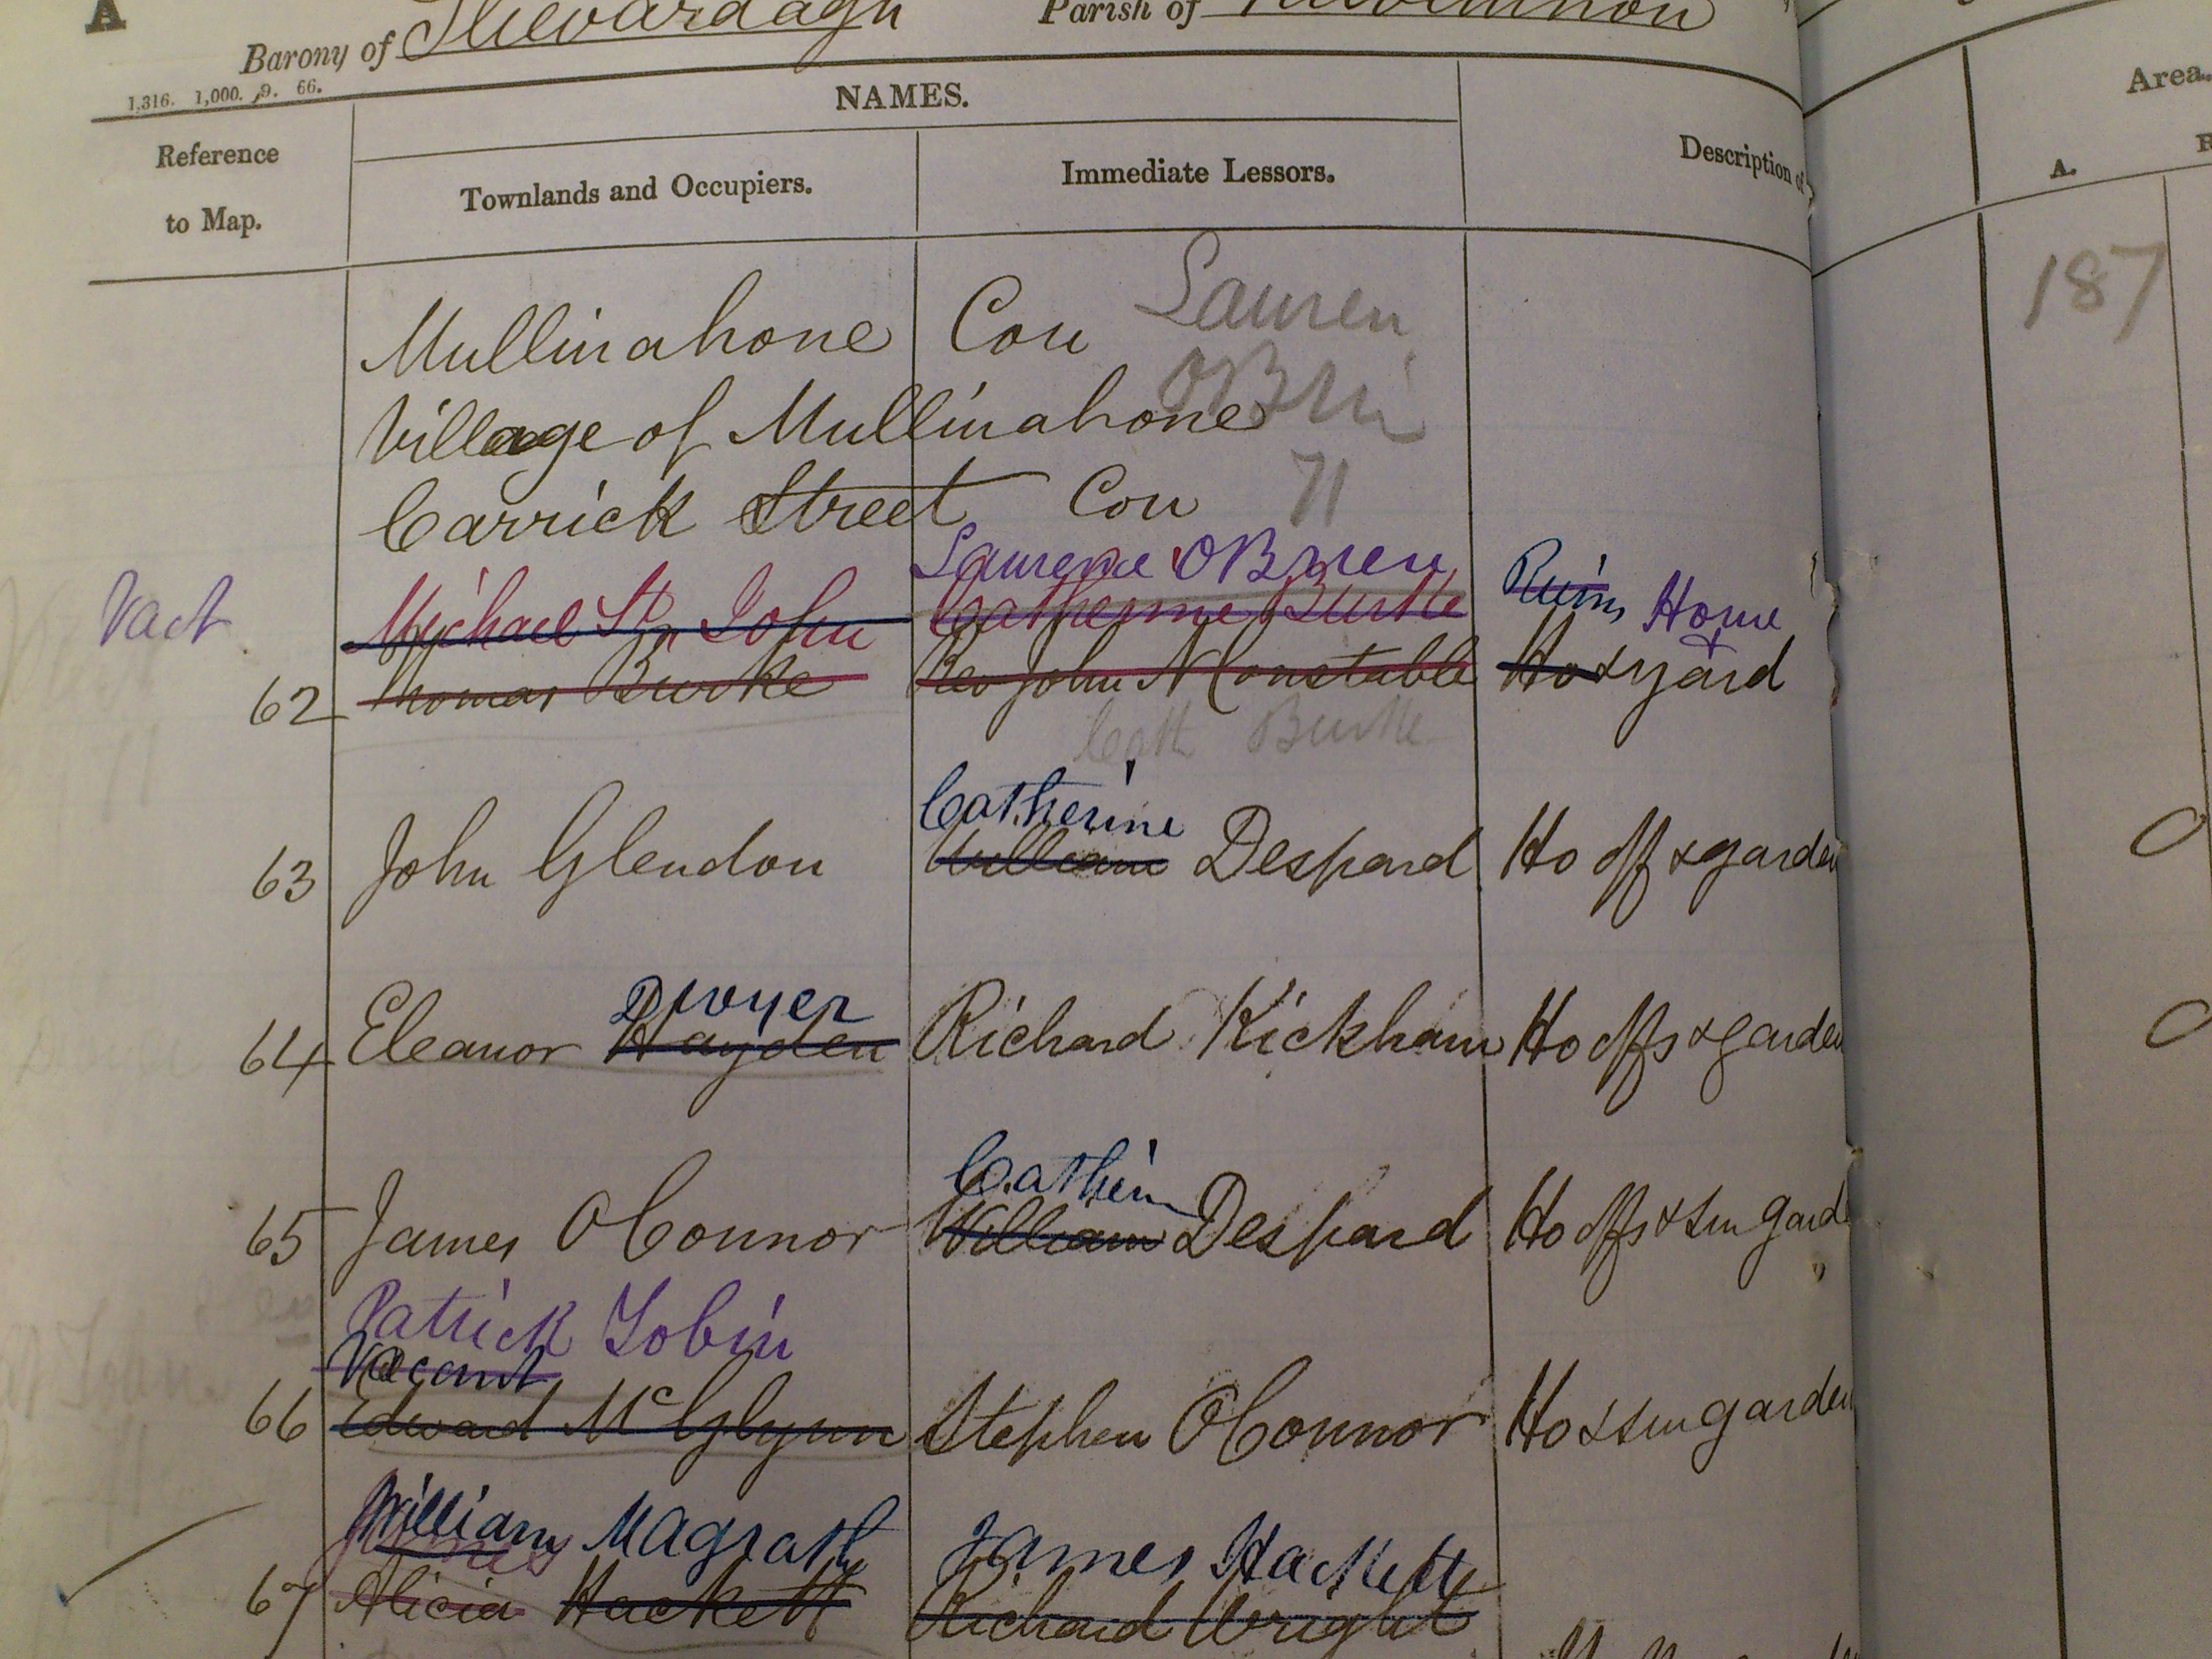 A
Barony of Slievardagh Parish of
1,316. 1,000. 9. 66.
NAMES.
Area.
Reference to Map.
Townlands and Occupiers.
Immediate Lessors.
Description of
A.
R
Mullinahone Con
Lauren
187
O'Bri
Village of Mullinahone
Carrick Street Con
71
Laurence O'Brien
Vact
Michael St. John Catherine Burke Ruins Home
62 Thomas Burke Rev John N Constable Ho & yard
Cath Burke
Catherine
63 John Glendon William Despard Ho off & garden
Dwyer
64 Eleanor Hayden Richard Kickham Ho offs & garden
Catherin
65 James O'Connor William Despard Ho offs & sm gard
Patrick Tobin
Vacant
66 Edward McGlynn Stephen O'Connor Ho & sm garden
William Magrath James Hackett
James
67 Alicia Hackett Richard Wright